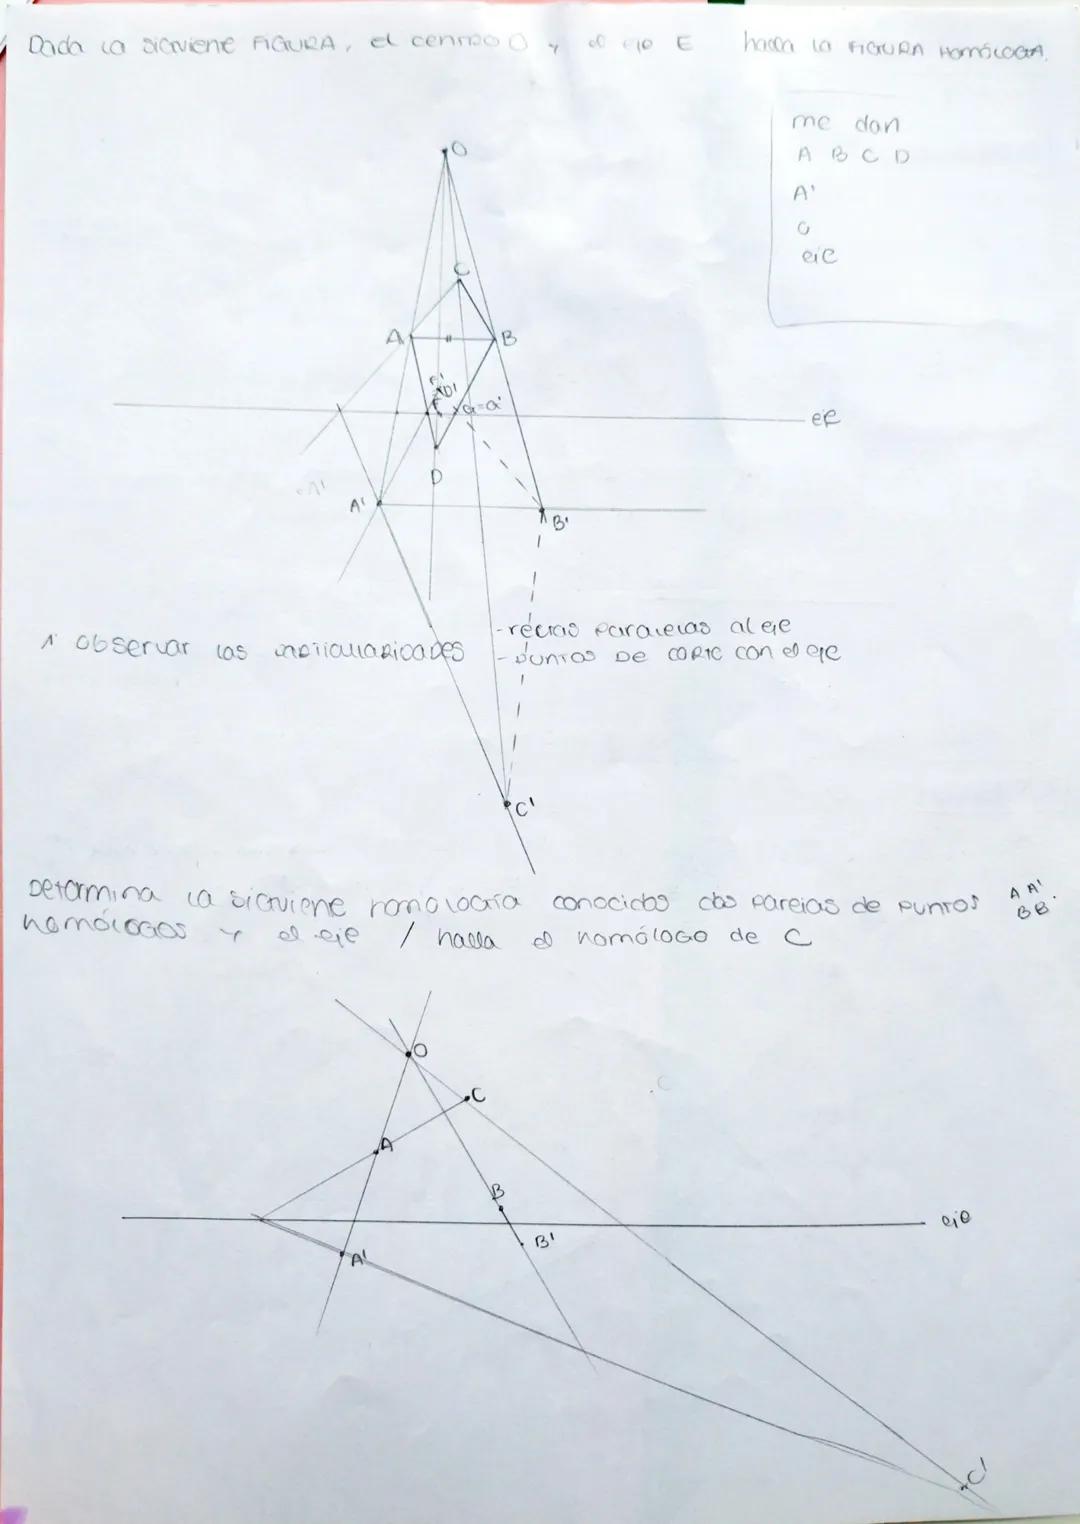 Dada la siguiente FIGURA, el centro O y el eje E halla la FIGURA HOMÓLOGA.
me dan
A B C D
A'
O
eje
O
C
A
B
D'
a=a'
eje
D
A'
A'
B'
1 Observar las
-rectas paralelas al eje
-puntos DE CORTE con el eje
C'
Determina la siguiente homología conocidas dos parejas de puntos A A'
homólogos y el eje / halla el homólogo de C
B B'
O
C
C
A
B
eje
B'
A'
C'